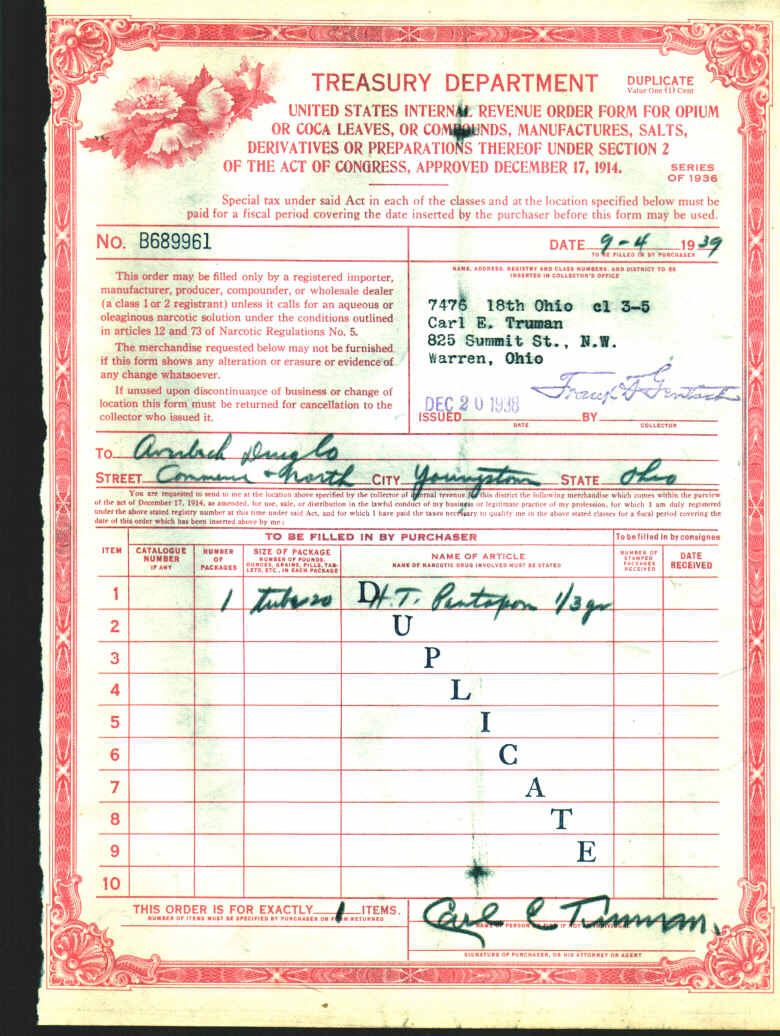 TREASURY DEPARTMENT
DUPLICATE
Value One (1) Cent
UNITED STATES INTERNAL REVENUE ORDER FORM FOR OPIUM
OR COCA LEAVES, OR COMPOUNDS, MANUFACTURES, SALTS,
DERIVATIVES OR PREPARATIONS THEREOF UNDER SECTION 2
OF THE ACT OF CONGRESS, APPROVED DECEMBER 17, 1914.
SERIES
OF 1936
Special tax under said Act in each of the classes and at the location specified below must be
paid for a fiscal period covering the date inserted by the purchaser before this form may be used.
No. B689961
DATE 9-4 1939
TO BE FILLED IN BY PURCHASER
This order may be filled only by a registered importer,
manufacturer, producer, compounder, or wholesale dealer
(a class 1 or 2 registrant) unless it calls for an aqueous or
oleaginous narcotic solution under the conditions outlined
in articles 12 and 73 of Narcotic Regulations No. 5.
The merchandise requested below may not be furnished
if this form shows any alteration or erasure or evidence of
any change whatsoever.
If unused upon discontinuance of business or change of
location this form must be returned for cancellation to the
collector who issued it.
NAME, ADDRESS, REGISTRY AND CLASS NUMBERS, AND DISTRICT TO BE
INSERTED IN COLLECTOR'S OFFICE
7476 18th Ohio cl 3-5
Carl E. Truman
825 Summit St., N.W.
Warren, Ohio
DEC 20 1938
ISSUED BY
DATE COLLECTOR
TO Drug Co
STREET Commerce + North CITY Youngstown STATE Ohio
You are requested to send to me at the location above specified by the collector of internal revenue, of this district the following merchandise which comes within the purview
of the act of December 17, 1914, as amended, for use, sale, or distribution in the lawful conduct of my business or legitimate practice of my profession, for which I am duly registered
under the above stated registry number at this time under said Act, and for which I have paid the taxes necessary to qualify me in the above stated classes for a fiscal period covering the
date of this order which has been inserted above by me:
TO BE FILLED IN BY PURCHASER
To be filled in by consignee
ITEM
CATALOGUE
NUMBER
IF ANY
NUMBER
OF
PACKAGES
SIZE OF PACKAGE
NUMBER OF POUNDS,
OUNCES, GRAINS, PILLS, TAB-
LETS, ETC., IN EACH PACKAGE
NAME OF ARTICLE
NAME OF NARCOTIC DRUG INVOLVED MUST BE STATED
NUMBER OF
STAMPED
PACKAGES
RECEIVED
DATE
RECEIVED
1 1 H.T. Pantopon 1/3 gr
2
3
4
5
6
7
8
9
10
DUPLICATE
THIS ORDER IS FOR EXACTLY 1 ITEMS.
NUMBER OF ITEMS MUST BE SPECIFIED BY PURCHASER OR FORM RETURNED
Carl E Truman.
NAME OF PERSON OR FIRM IF NOT INDIVIDUAL
SIGNATURE OF PURCHASER, OR HIS ATTORNEY OR AGENT